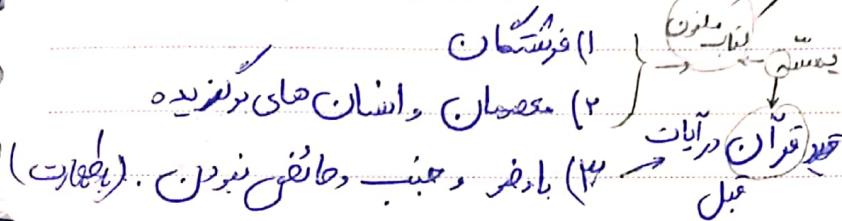 یمسّه ← کتاب مکنون { ۱) فرشتگان
۲) معصومان و انسان های برگزیده
قرآن در آیات قبل ← ۳) با وضو و جنب و حائض نبودن. (باطهارت)